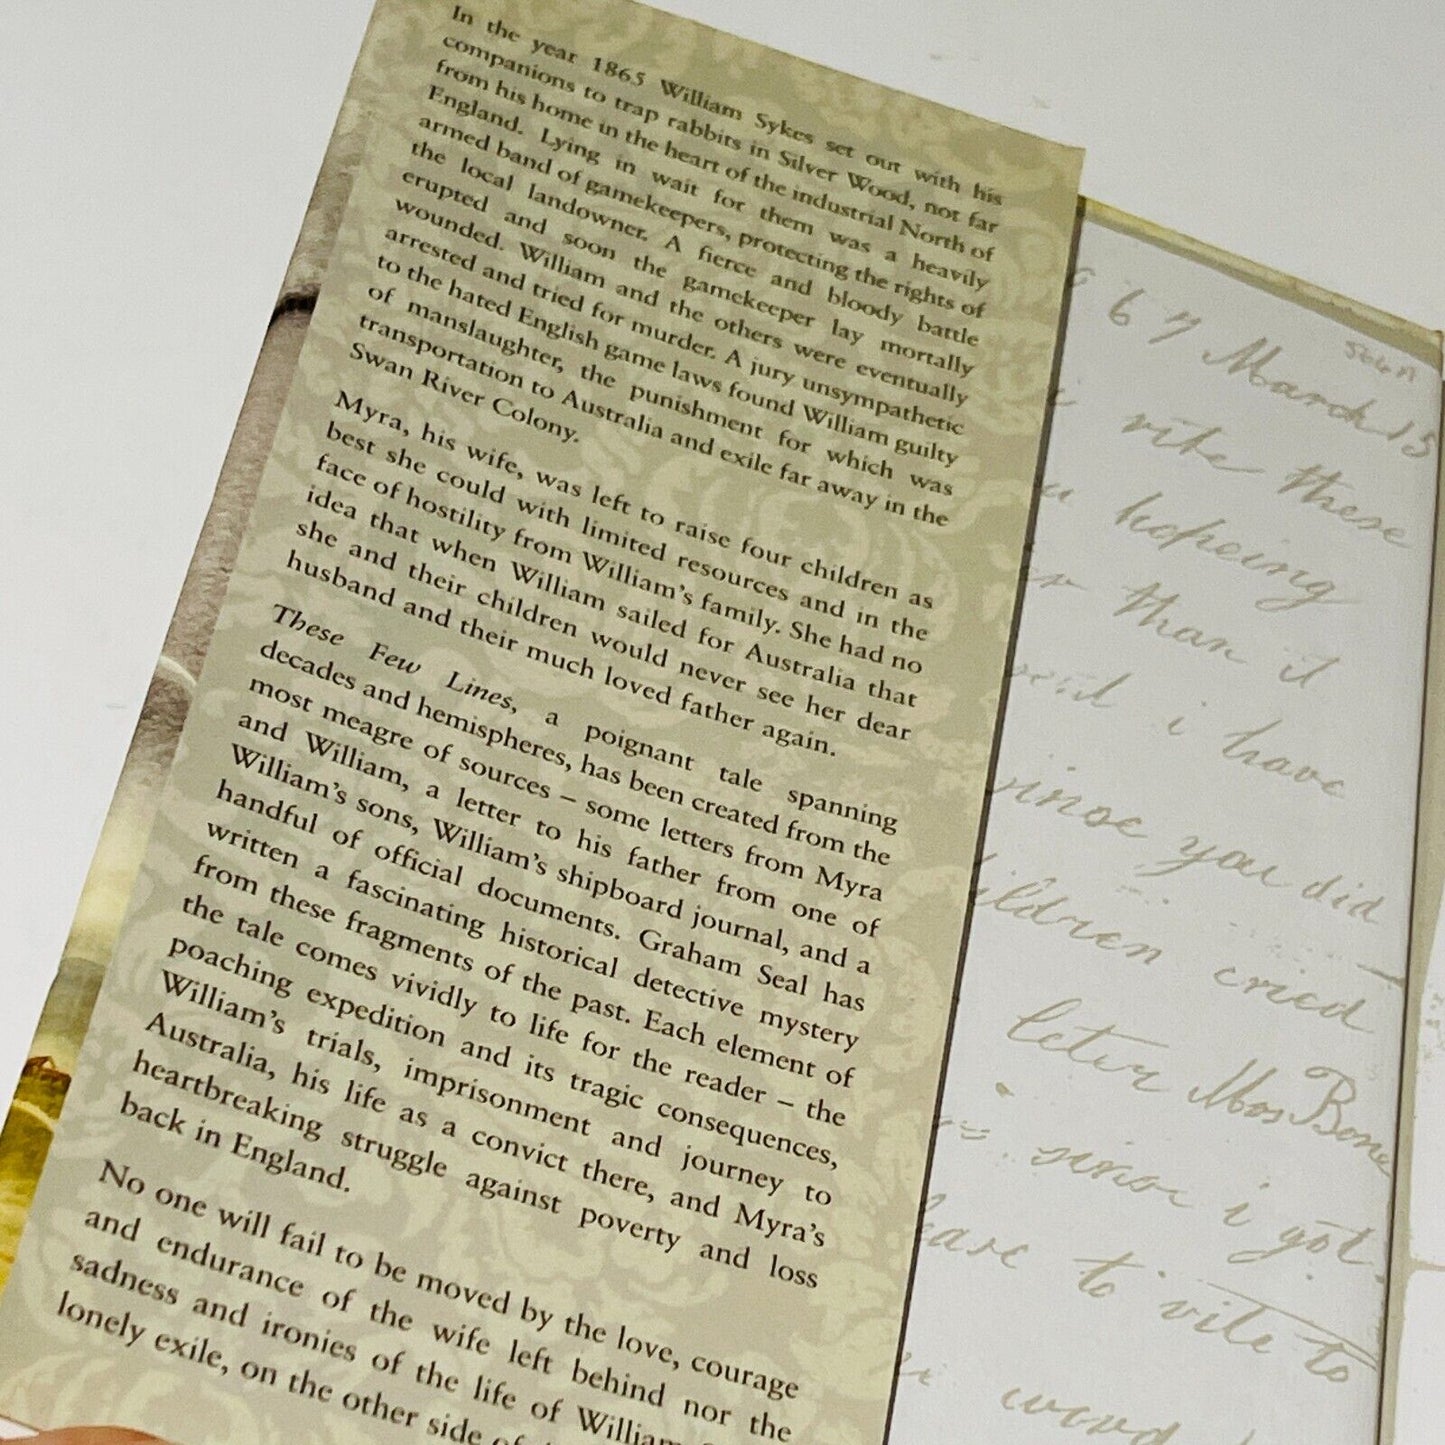 In the year 1865 William Sykes set out with his
companions to trap rabbits in Silver Wood, not far
from his home in the heart of the industrial North of
England. Lying in wait for them was a heavily
armed band of gamekeepers, protecting the rights of
the local landowner. A fierce and bloody battle
erupted and soon the gamekeeper lay mortally
wounded. William and the others were eventually
arrested and tried for murder. A jury unsympathetic
to the hated English game laws found William guilty
of manslaughter, the punishment for which was
transportation to Australia and exile far away in the
Swan River Colony.
Myra, his wife, was left to raise four children as
best she could with limited resources and in the
face of hostility from William's family. She had no
idea that when William sailed for Australia that
she and their children would never see her dear
husband and their much loved father again.
These Few Lines, a poignant tale spanning
decades and hemispheres, has been created from the
most meagre of sources – some letters from Myra
and William, a letter to his father from one of
William's sons, William's shipboard journal, and a
handful of official documents. Graham Seal has
written a fascinating historical detective mystery
from these fragments of the past. Each element of
the tale comes vividly to life for the reader – the
poaching expedition and its tragic consequences,
William's trials, imprisonment and journey to
Australia, his life as a convict there, and Myra's
heartbreaking struggle against poverty and loss
back in England.
No one will fail to be moved by the love, courage
and endurance of the wife left behind nor the
sadness and ironies of the life of William
lonely exile, on the other side of
6 7 March 15
vite these
hopeing
than it
i have
sinse you did
children cried
letter Mos Bone
sinse i got
please to vite to